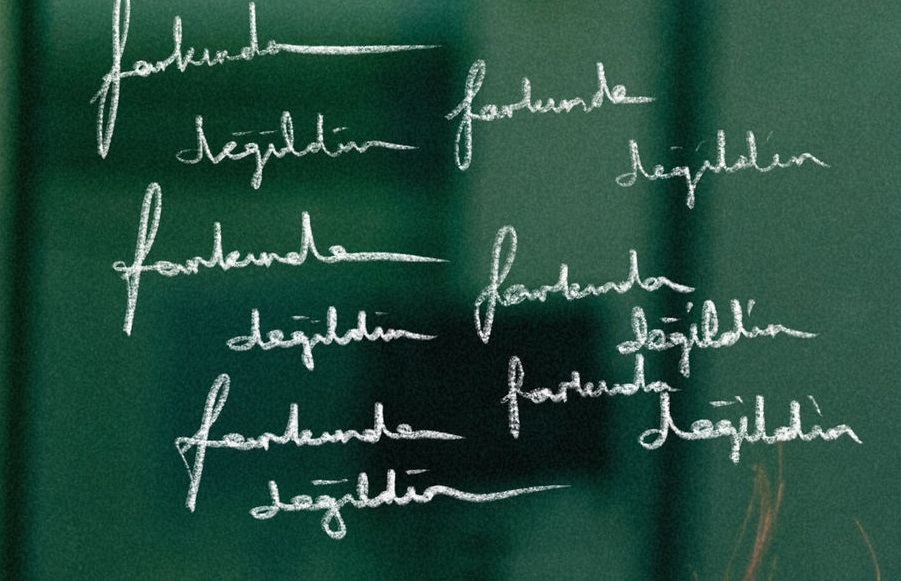 farkında
değildin
farkında
değildin
farkında
değildin
farkında
değildin
farkında
değildin
farkında
değildin